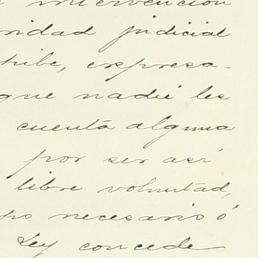 intervención
ridad judicial
hibe, expresa-
que nadie les
cuenta alguna
por ser así
libre voluntad,
po necesario ó
Ley concede